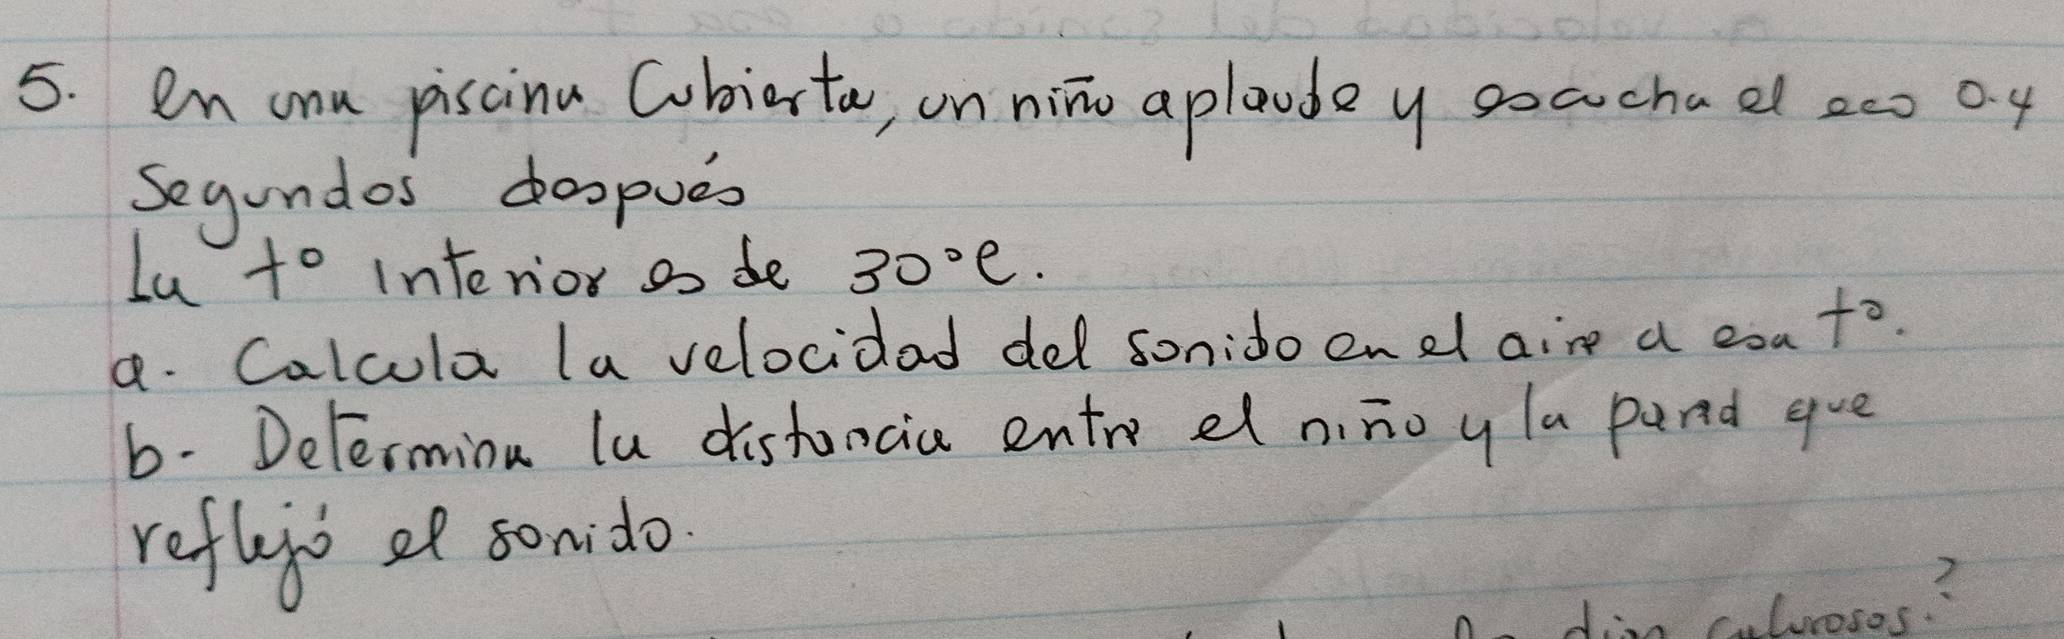 5. en una piscina Cubierta, un niño aplaude y escucha el eco 0.4
segundos después
La tº interior es de 30°C.
a. Calcula la velocidad del sonido en el aire a esa tº.
b. Determina la distancia entre el niño y la pared que
reflejó el sonido.
calurosos?